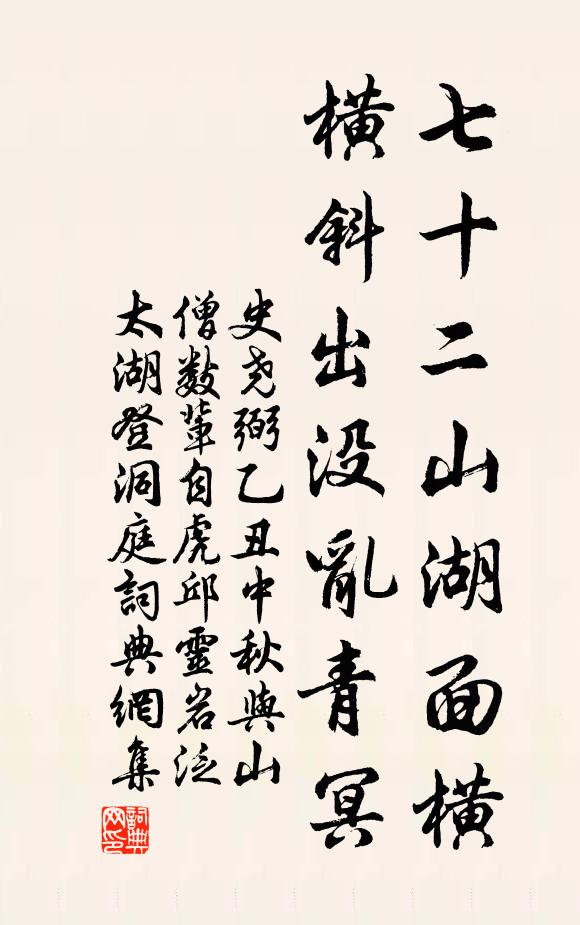 七十二山湖面橫
橫斜出没亂青冥
史堯弼乙丑中秋與山
僧數輩自虎邱靈岩泛
太湖登洞庭詞典網集
詞典网印